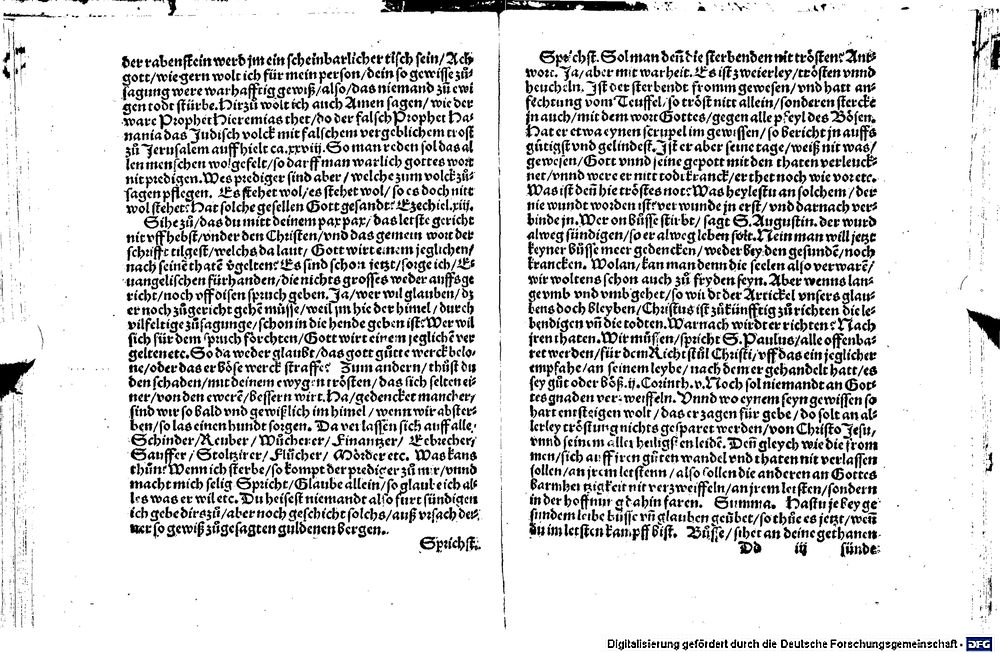 der rabenstein werd jm ein scheinbarlicher tisch sein/Ach
gott/wie gern wolt ich für mein person/dein so gewisse zů-
sagung were warhafftig gewiß/also/das niemand zů ewi
gen todt stürbe. Hirzů wolt ich auch Amen sagen/wie der
ware Prophet Hieremias thet/do der falsch Prophet Ha-
nania das Jüdisch volck mit falschem vergeblichem trost
zů Jerusalem auffhielt ca.xxviij. So man reden sol das al
len menschen wolgefelt/so darff man warlich gottes wort
nit predigen. Wes prediger sind aber/welche zum volck zů-
sagen pflegen. Es stehet wol/es stehet wol/so es doch nitt
wol stehet? Hat solche gesellen Gott gesandt? Ezechiel.xiij.
Sihe zů/das du mitt deinem pax pax/das letste gericht
nit vff hebst/vnder den Christen/vnd das gemein wort der
schrifft tilgest/welchs da laut/Gott wirt einem jeglichen/
nach seinē thatē v̄gelten? Es sind schon jetzt/sorge ich/E-
uangelischen fürhanden/die nichts grosses weder auffs ge
richt/noch vff disen spruch geben. Ja/wer wil glauben/dz
er noch zů gericht gehē müsse/weil jm hie der himel/durch
vilfeltige zůsagunge/schon in die hende geben ist? Wer wil
sich für dem spruch förchten/Gott wirt einem jeglichē ver
gelten etc. So da weder glaubt/das gott gůtte werck belo-
ne/oder das er böse werck straffe? Zum andern/thůst du
den schaden/mit deinem ewygen trösten/das sich selten ei-
ner/von den ewerē/bessern wirt. Ha/gedencket mancher/
sind wir so bald vnd gewißlich im himel/wenn wir abster-
ben/so las einen hundt sorgen. Da verlassen sich auff alle/
Schinder/Reuber/Wücherer/Finantzer/Eebrecher/
Sauffer/Stoltzirer/Flücher/Mörder etc. Was kans
thůn? Wenn ich sterbe/so kompt der prediger zů mir/vnnd
macht mich selig Spricht/Glaube allein/so glaube ich al-
les was er wil etc. Du heisest niemandt also furt sündigen
ich gebe dirs zů/aber noch geschicht solchs/auß vrsach dei-
ner so gewiß zůgesagten guldenen bergen.
Sprichst.
Sprichst. Sol man deñ die sterbenden nit trösten? Ant-
wort. Ja/aber mit warheit. Es ist zweierley/trösten vnnd
heucheln. Ist der sterbendt fromm gewesen/vnd hatt an-
fechtung vom Teuffel/so tröst nitt allein/sonderen stercke
jn auch/mit dem wort Gottes/gegen alle pfeyl des Bösen.
Hat er etwa eynen scrupel im gewissen/so bericht jn auffs
gütigst vnd gelindest. Jst er aber seine tage/weiß nit was/
gewesen/Gott vnnd seine gepott mit den thaten verleuck-
net/vnnd were er nitt todtkranck/er thet noch wie vor etc.
Was ist deñ hie tröstes not? Was heylestu an solchem/der
nie wundt worden ist? verwunde jn erst/vnd darnach ver-
binde jn. Wer on bůsse stirbt/sagt S. Augustin. der wurd
alweg sündigen/so er alweg leben solt. Nein man will jetzt
keyner bůsse meer gedencken/weder bey den gesundē/noch
krancken. Wolan/kan man denn die seelen also verwarē/
wir woltens schon auch zů fryden seyn. Aber wenns lan-
ge vmb vnd vmb gehet/so wirdt der Artickel vnsers glau-
bens doch bleyben/Christus ist zůkünfftig zů richten die le-
bendigen vñ die todten. Warnach wirdt er richten? Nach
jren thaten. Wir müssen/spricht S. Paulus/alle offenba-
ret werden/für dem Richtstůl Christi/vff das ein jeglicher
empfahe/an seinem leybe/nach dem er gehandelt hatt/es
sey gůt oder böß.ij. Corinth.v. Noch sol niemandt an Got-
tes gnaden verzweiffeln. Vnnd wo eynem seyn gewissen so
hart entsteigen wolt/das er zagen für gebe/do solt an al-
lerley tröstung nichts gesparet werden/von Christo Jesu/
vnnd seinem allerheiligsten leidē. Deñ gleych wie die from
men/sich auff iren gůten wandel vnd thaten nit verlassen
sollen/an jrem letstenn/also sollen die anderen an Gottes
barmhertzigkeit nit verzweiffeln/an jrem letsten/sondern
in der hoffnung dahin faren. Summa. Hastu je bey ge
sundem leibe bůsse vñ glauben geübet/so thůe es jetzt/weñ
du im letsten kampff bist. Bůsse/sihet an deine gethanen
Dd iij sünde
Digitalisierung gefördert durch die Deutsche Forschungsgemeinschaft - DFG